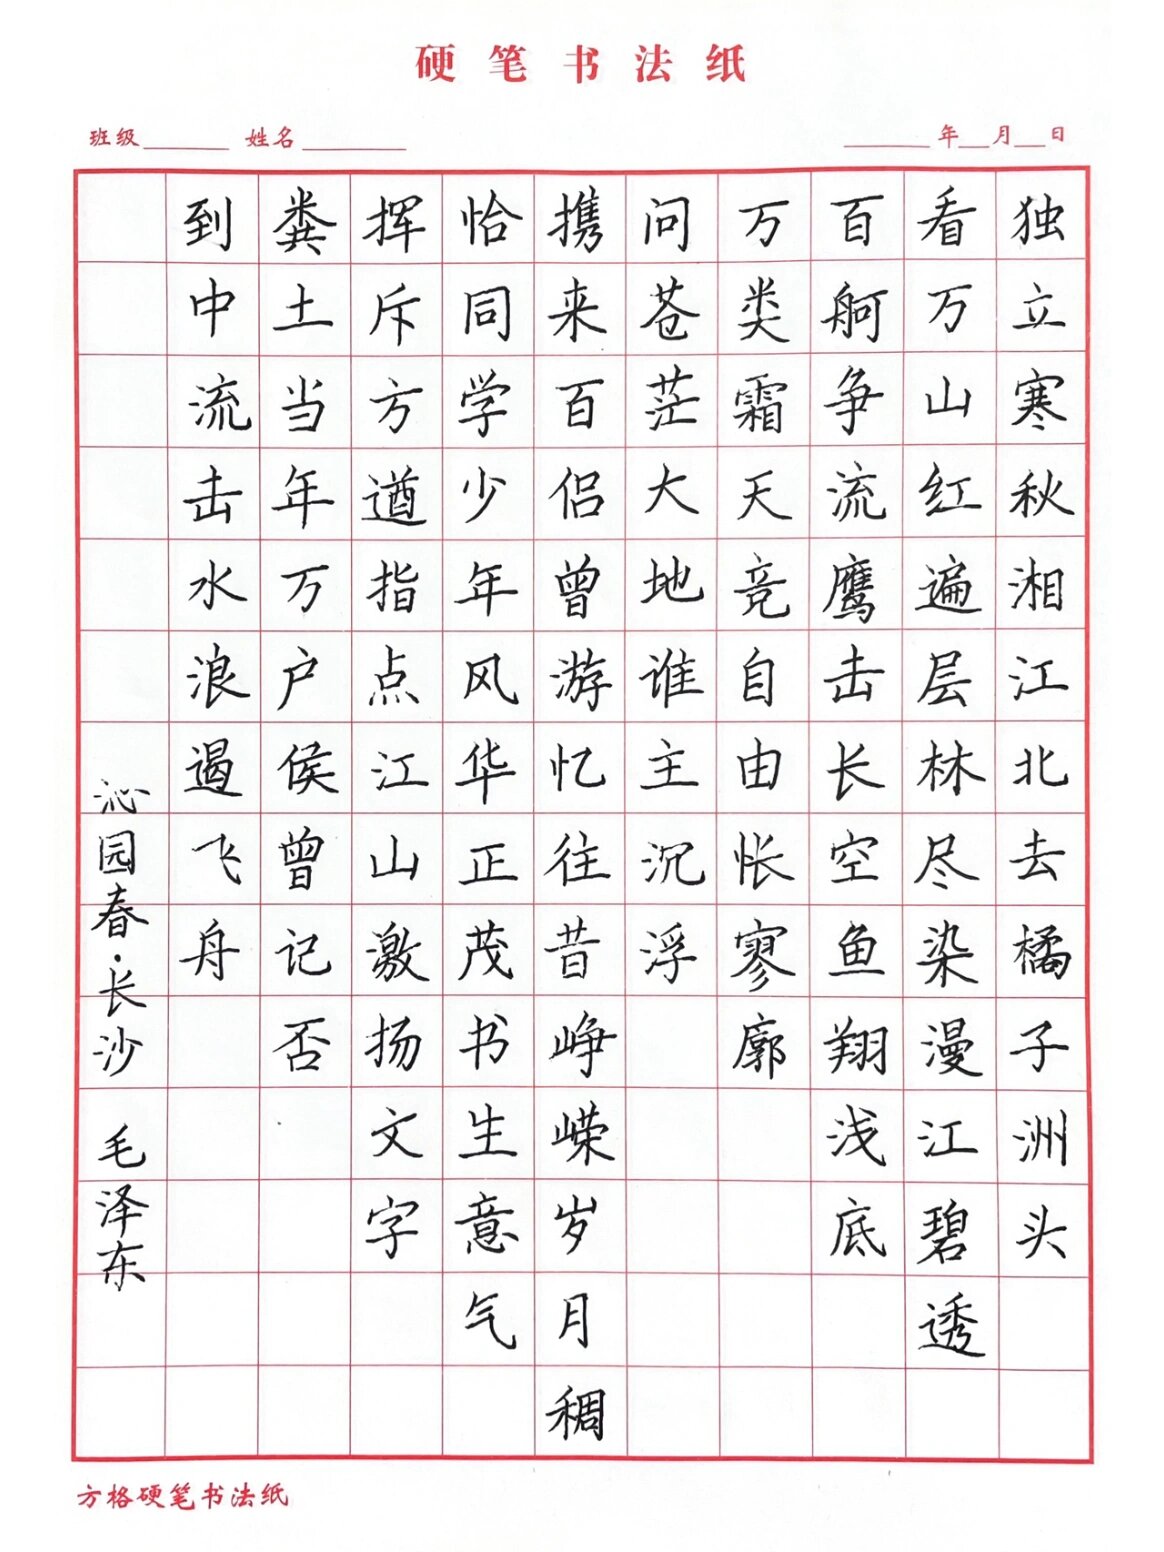 硬笔书法纸
班级 姓名 年 月 日
独立寒秋湘江北去橘子洲头
看万山红遍层林尽染漫江碧透
百舸争流鹰击长空鱼翔浅底
万类霜天竞自由怅寥廓
问苍茫大地谁主沉浮
携来百侣曾游忆往昔峥嵘岁月稠
恰同学少年风华正茂书生意气
挥斥方遒指点江山激扬文字
粪土当年万户侯曾记否
到中流击水浪遏飞舟
沁园春·长沙 毛泽东
方格硬笔书法纸